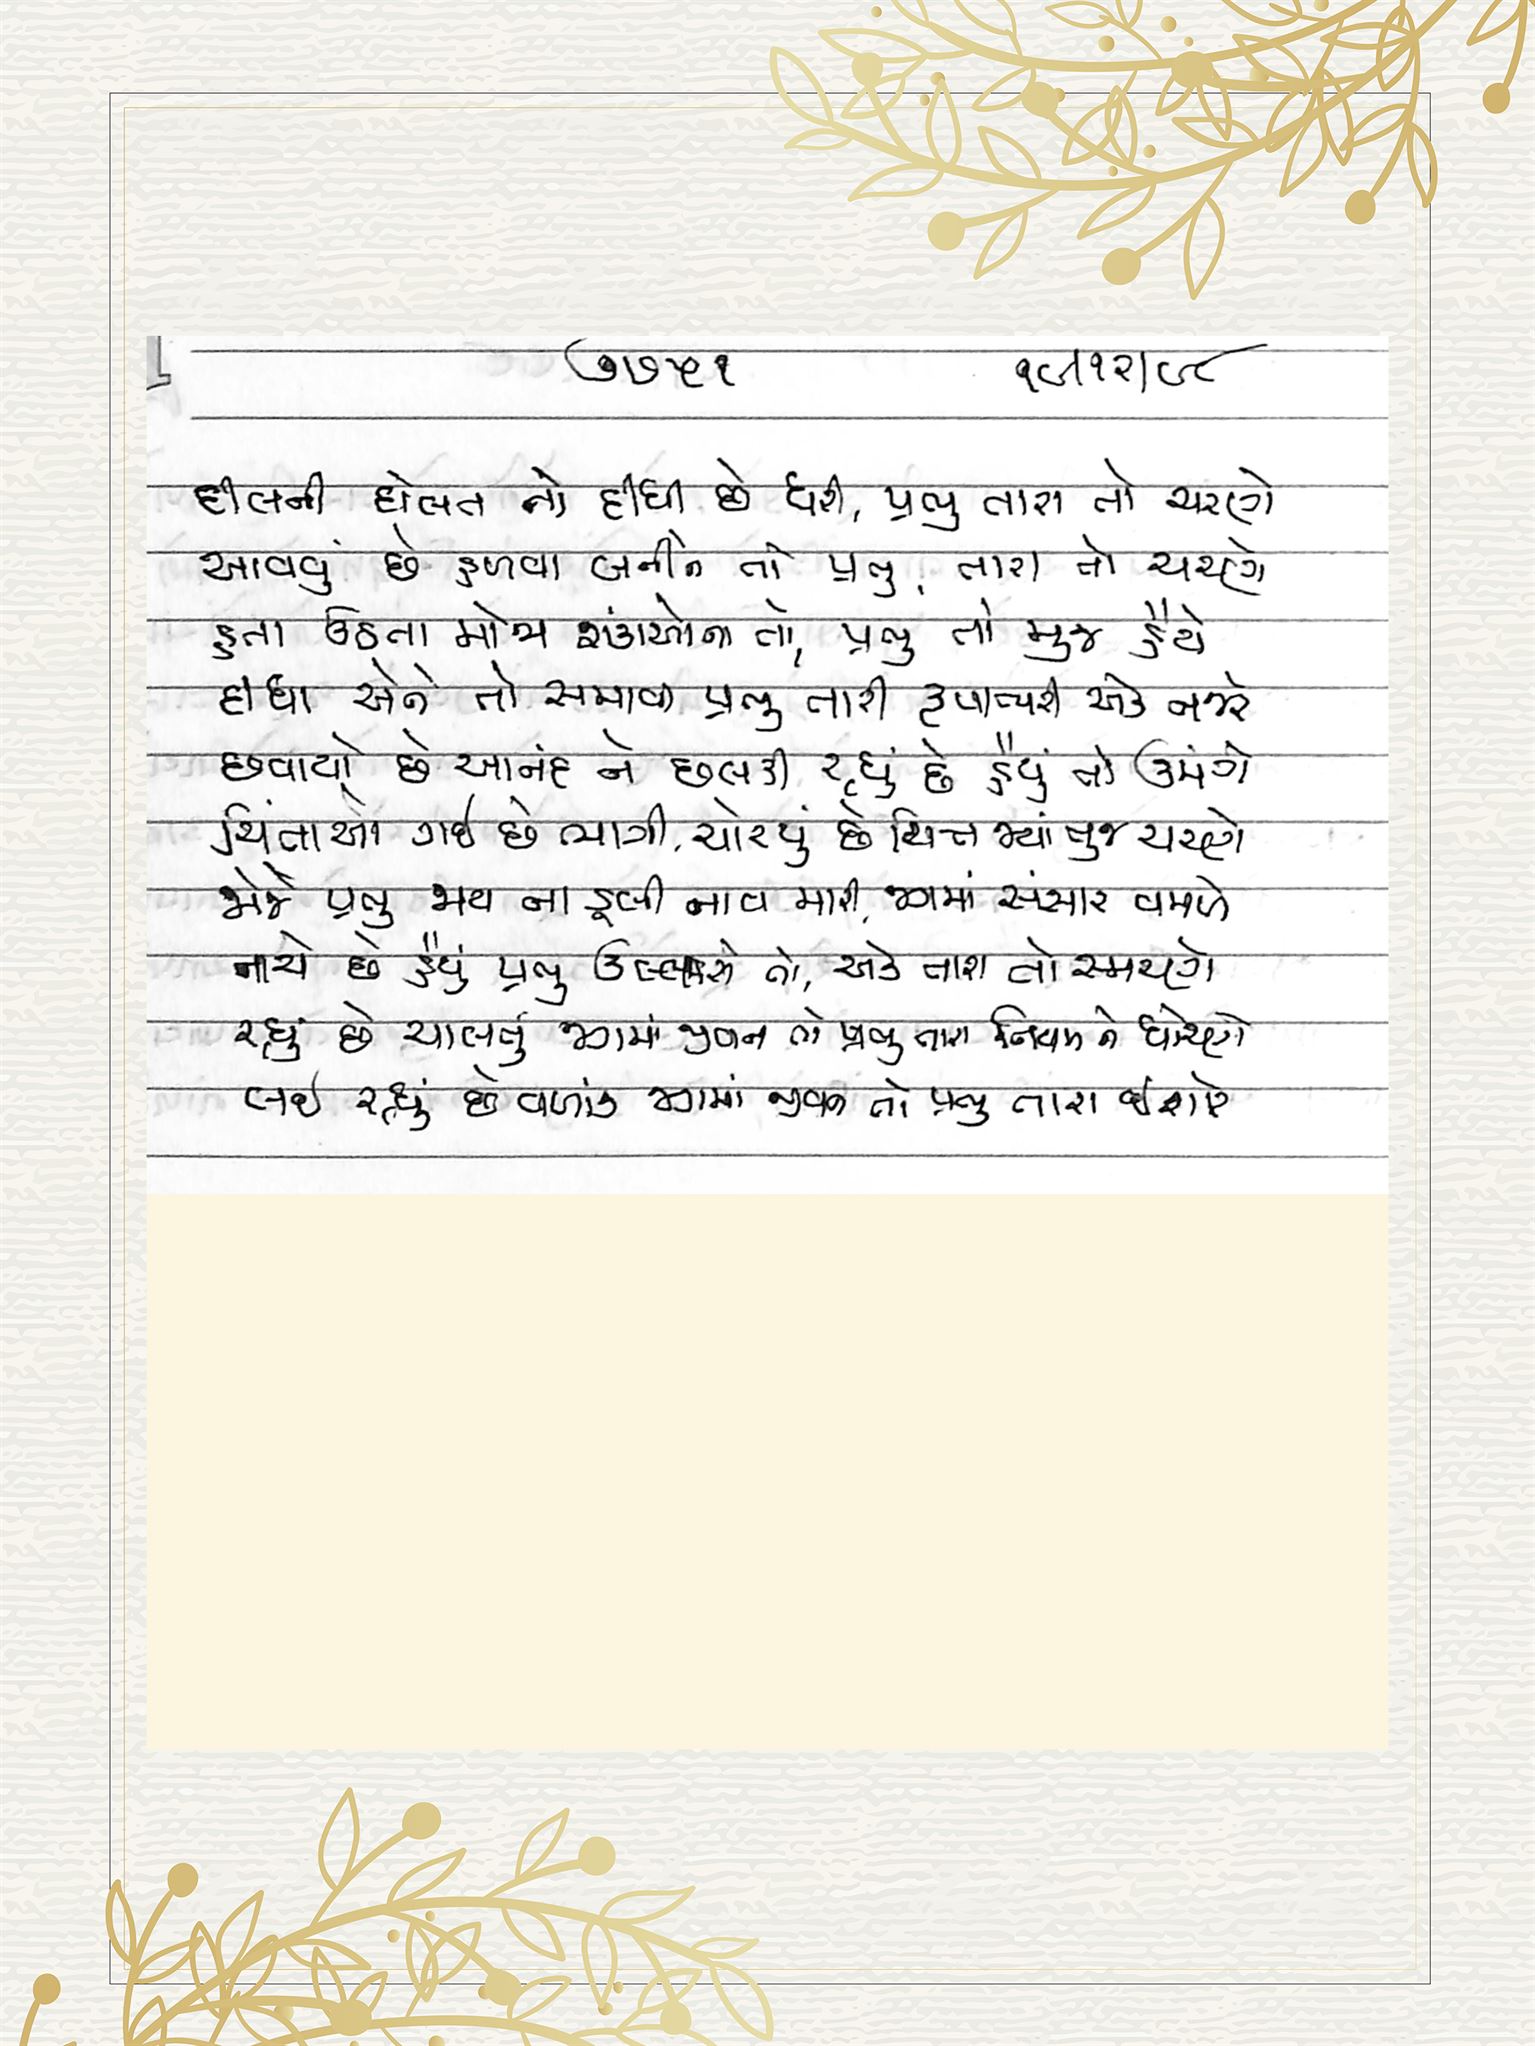 ૭૭૫૧ ૧૯/૧૨/૯૮
દીલની દોલત તો દીધી છે ધરી, પ્રભુ તારા તો ચરણે
આવવું છે હળવા બનીને તો પ્રભુ, તારા તો ચરણે
હતા ઉઠતા મોજા શંકાઓના તો, પ્રભુ તો મુજ હૈયે
દીધા એને તો સમાવી પ્રભુ તારી કૃપાભરી એક નજરે
છવાયો છે આનંદ ને છલકી રહ્યું છે હૈયું તો ઉમંગે
ચિંતાઓ ગઈ છે ભાગી, ચોરયું છે ચિત્ત જ્યાં તુજ ચરણે
જોજે પ્રભુ જાય ના ડૂબી નાવ મારી, જગમાં સંસાર વમળે
નાચે છે હૈયું પ્રભુ ઉલ્લાસે તો, એક તારા તો સ્મરણે
રહ્યું છે ચાલતું જગમાં જીવન તો પ્રભુ તારા નિયમ ને ધોરણે
લઈ રહ્યું છે વળાંક જગમાં જીવન તો પ્રભુ તારા ઈશારે